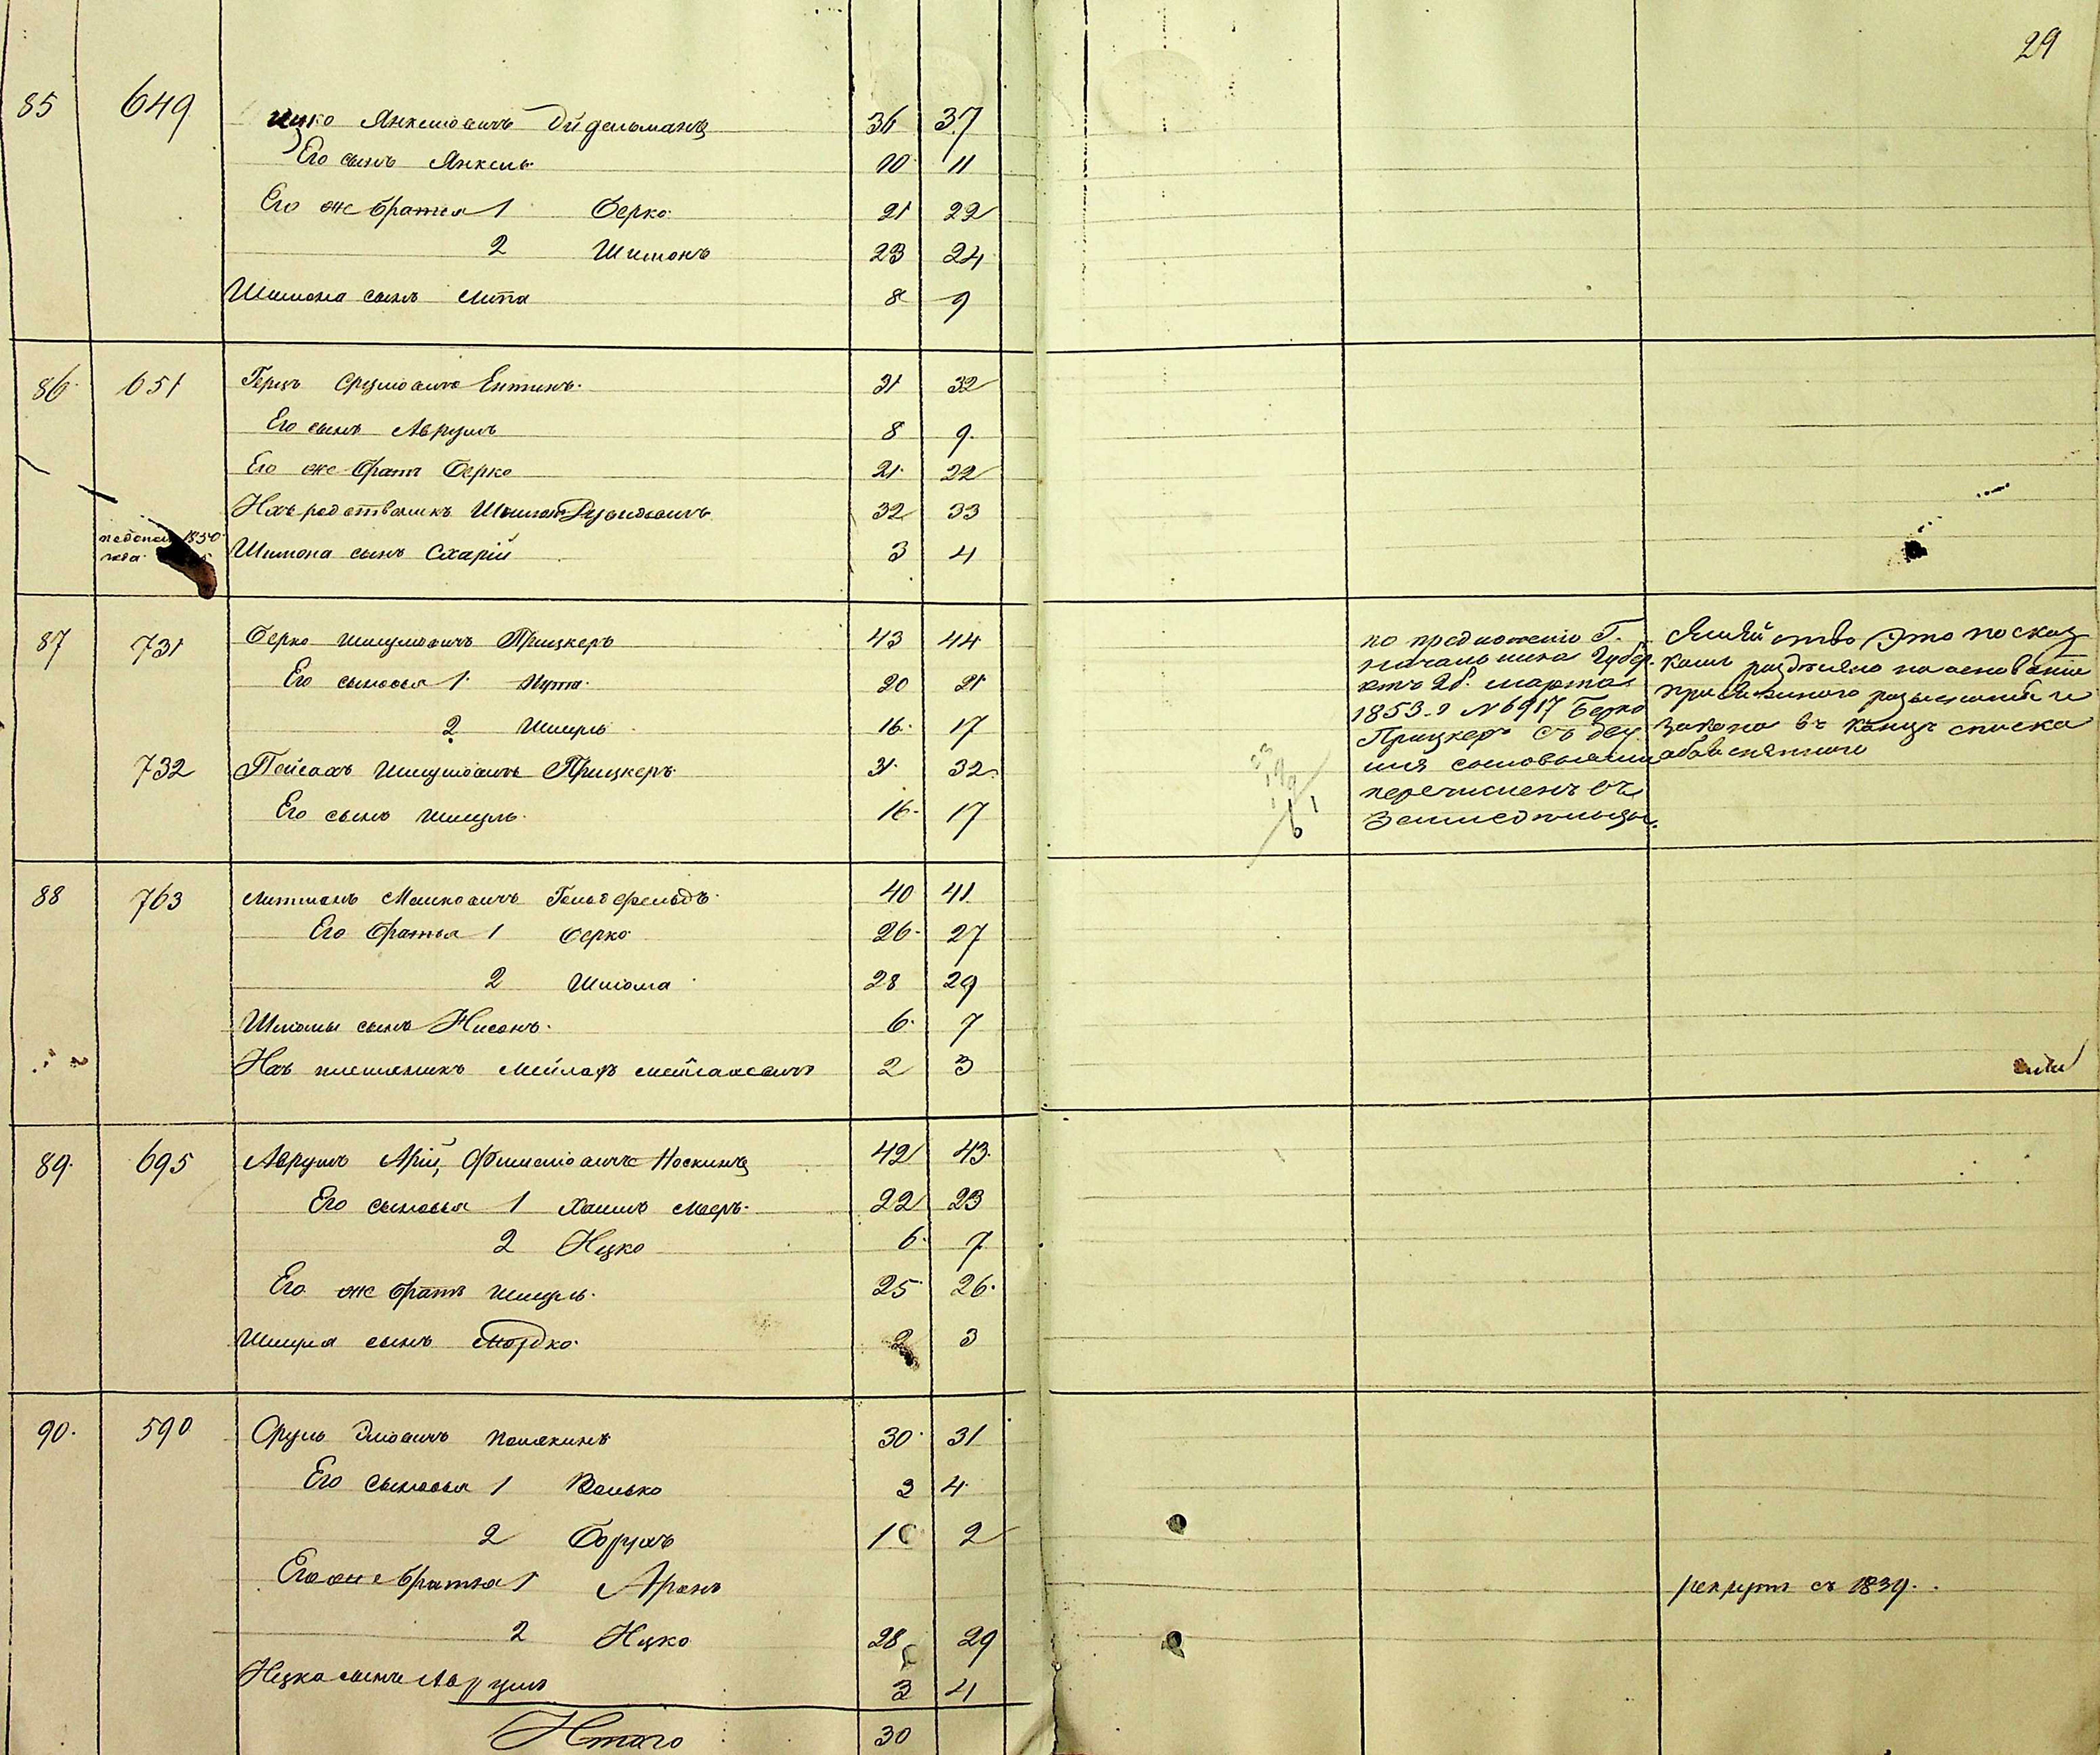 29
85 649 Ицко Янкелiовичъ Эйдельманъ 36 37
Его сынъ Янкель 10 11
Его же братья 1 Берко 21 22
2 Шимонъ 23 24
Шимона сынъ Липа 8 9
86 651 Герцъ Срулiовичъ Ентинъ 31 32
Его сынъ Аврумъ 8 9
Его же братъ Берко 21 22
Ихъ родственникъ Шимон 32 33
1850
года Шимона сынъ Схарiй 3 4
87 731 Берко Шмулiовичъ Прицкеръ 43 44
Его сыновья 1 Нута 20 21
2 Шмуль 16 17
732 Пейсахъ Шмулiовичъ Прицкеръ 31 32
Его сынъ Шмуль 16 17
по предложенiю Г.
Начальника Губер.
отъ 26. марта
1853. г N 6917 Берко
Прицкеръ съ дву
мя сыновьями
перечисленъ въ
Земледельцы.
Семейство Это по сказ
камъ разделено на основанiи
закона въ конце списка
объясненнаго
88 763 Литманъ Мошковичъ Гольдфельдъ 40 41
Его братья 1 Берко 26 27
2 Шлома 28 29
Шломы сынъ Нисонъ 6 7
Ихъ племянникъ Мейлахъ 2 3
89 695 Аврумъ Арiй Фишелiовичъ Носкинъ 42 43
Его сыновья 1 Хаимъ Мееръ 22 23
2 Ицко 6 7
Его же братъ Шмуль 25 26
Шмуля сынъ Мордко 2 3
90 590 Сруль Элiовичъ Полякинъ 30 31
Его сыновья 1 Волько 3 4
2 Борухъ 1 2
Его же братья 1 Аронъ рекрутъ съ 1839
2 Ицко 28 29
Ицка сынъ Аврумъ 3 4
Итого 30